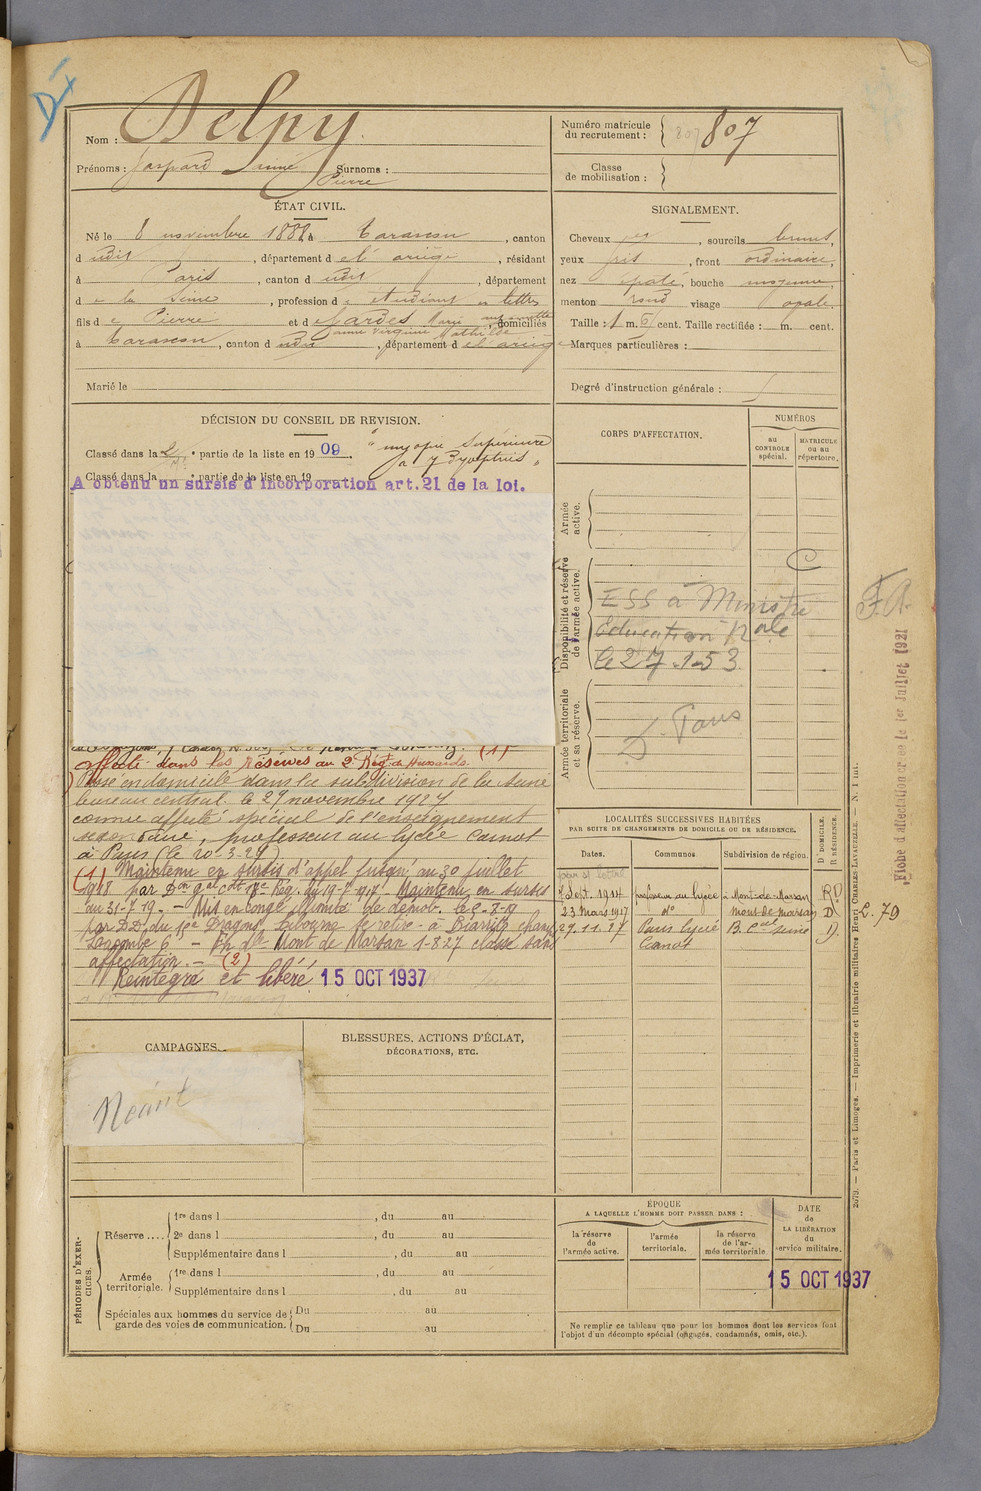 Nom : Delpy
Prénoms : Gaspard Anne Pierre Surnoms :
Numéro matricule du recrutement : 807 807
Classe de mobilisation :
ÉTAT CIVIL.
Né le 8 novembre 1888, à Tarascon, canton
d udit, département d e l'ariège, résidant
à Paris, canton d udit, département
d e la Seine, profession d étudiant ès lettres
fils d e Pierre et d e Gardes Marie Antoinette
Anne Virginie Mathilde domiciliés
à Tarascon, canton d udit, département d e l'ariège
Marié le
SIGNALEMENT.
Cheveux, sourcils bruns,
yeux gris, front ordinaire,
nez épaté, bouche moyenne,
menton rond visage ovale.
Taille : 1 m. 61 cent. Taille rectifiée : m. cent.
Marques particulières :
Degré d'instruction générale : 5
DÉCISION DU CONSEIL DE REVISION.
Classé dans la 2 e partie de la liste en 19 09. " myopie supérieure
à 7 Dyoptries "
Classé dans la e partie de la liste en 19
A obtenu un sursis d'incorporation art. 21 de la loi.
affecté dans les réserves au 2e Régt de Hussards. (1)
Passé en domicile dans la subdivision de la Seine
bureau central. le 29 novembre 1927
comme affecté spécial de l'enseignement
secondaire, professeur au lycée Carnot
à Paris (le 20-3-29)
(1) Maintenu en sursis d'appel jusqu'au 30 juillet
1918 par Don gal cdt 18e Rég. du 19-7-1917 - Maintenu en sursis
au 31-7-19. - Mis en congé illimité de démob. le 9-8-19
par D.D. du 15e Dragons, Libourne se retire à Biarritz chany
Lacombe 6 - Ph de Mont de Marsan 1-827 classé sans
affectation. - (2)
Réintégré et libéré 15 OCT 1937
CORPS D'AFFECTATION.
NUMÉROS
AU CONTROLE spécial.
MATRICULE ou au répertoire.
Armée active.
Disponibilité et réserve de l'armée active.
C
ESS à Ministre
Education Nale
le 27.1.53
Armée territoriale et sa réserve.
D. Paris
LOCALITÉS SUCCESSIVES HABITÉES
PAR SUITE DE CHANGEMENTS DE DOMICILE OU DE RÉSIDENCE.
Dates. Communes. Subdivision de région. D. DOMICILE. R. RÉSIDENCE.
7 Sept. 1914 professeur au lycée à Mont-de-Marsan RD
23 Mars 1917 do Mont de Marsan D
29.11.27 Paris Lycée Carnot B. Cal Seine D.
CAMPAGNES.
Néant
BLESSURES, ACTIONS D'ÉCLAT,
DÉCORATIONS, ETC.
PÉRIODES D'EXERCICES.
Réserve....
1re dans l, du au
2e dans l, du au
Supplémentaire dans l, du au
Armée territoriale.
1re dans l, du au
Supplémentaire dans l, du au
Spéciales aux hommes du service de garde des voies de communication.
Du au
Du au
ÉPOQUE
A LAQUELLE L'HOMME DOIT PASSER DANS :
la réserve de l'armée active.
l'armée territoriale.
la réserve de l'armée territoriale.
DATE de LA LIBÉRATION du service militaire.
15 OCT 1937
Ne remplir ce tableau que pour les hommes dont les services font
l'objet d'un décompte spécial (engagés, condamnés, omis, etc.).
2079. — Paris et Limoges. — Imprimerie et librairie militaires Henri CHARLES-LAVAUZELLE. — N. 1 int.
F.A.
Fiche d'affectation créée le 1er Juillet 1921
L. 79